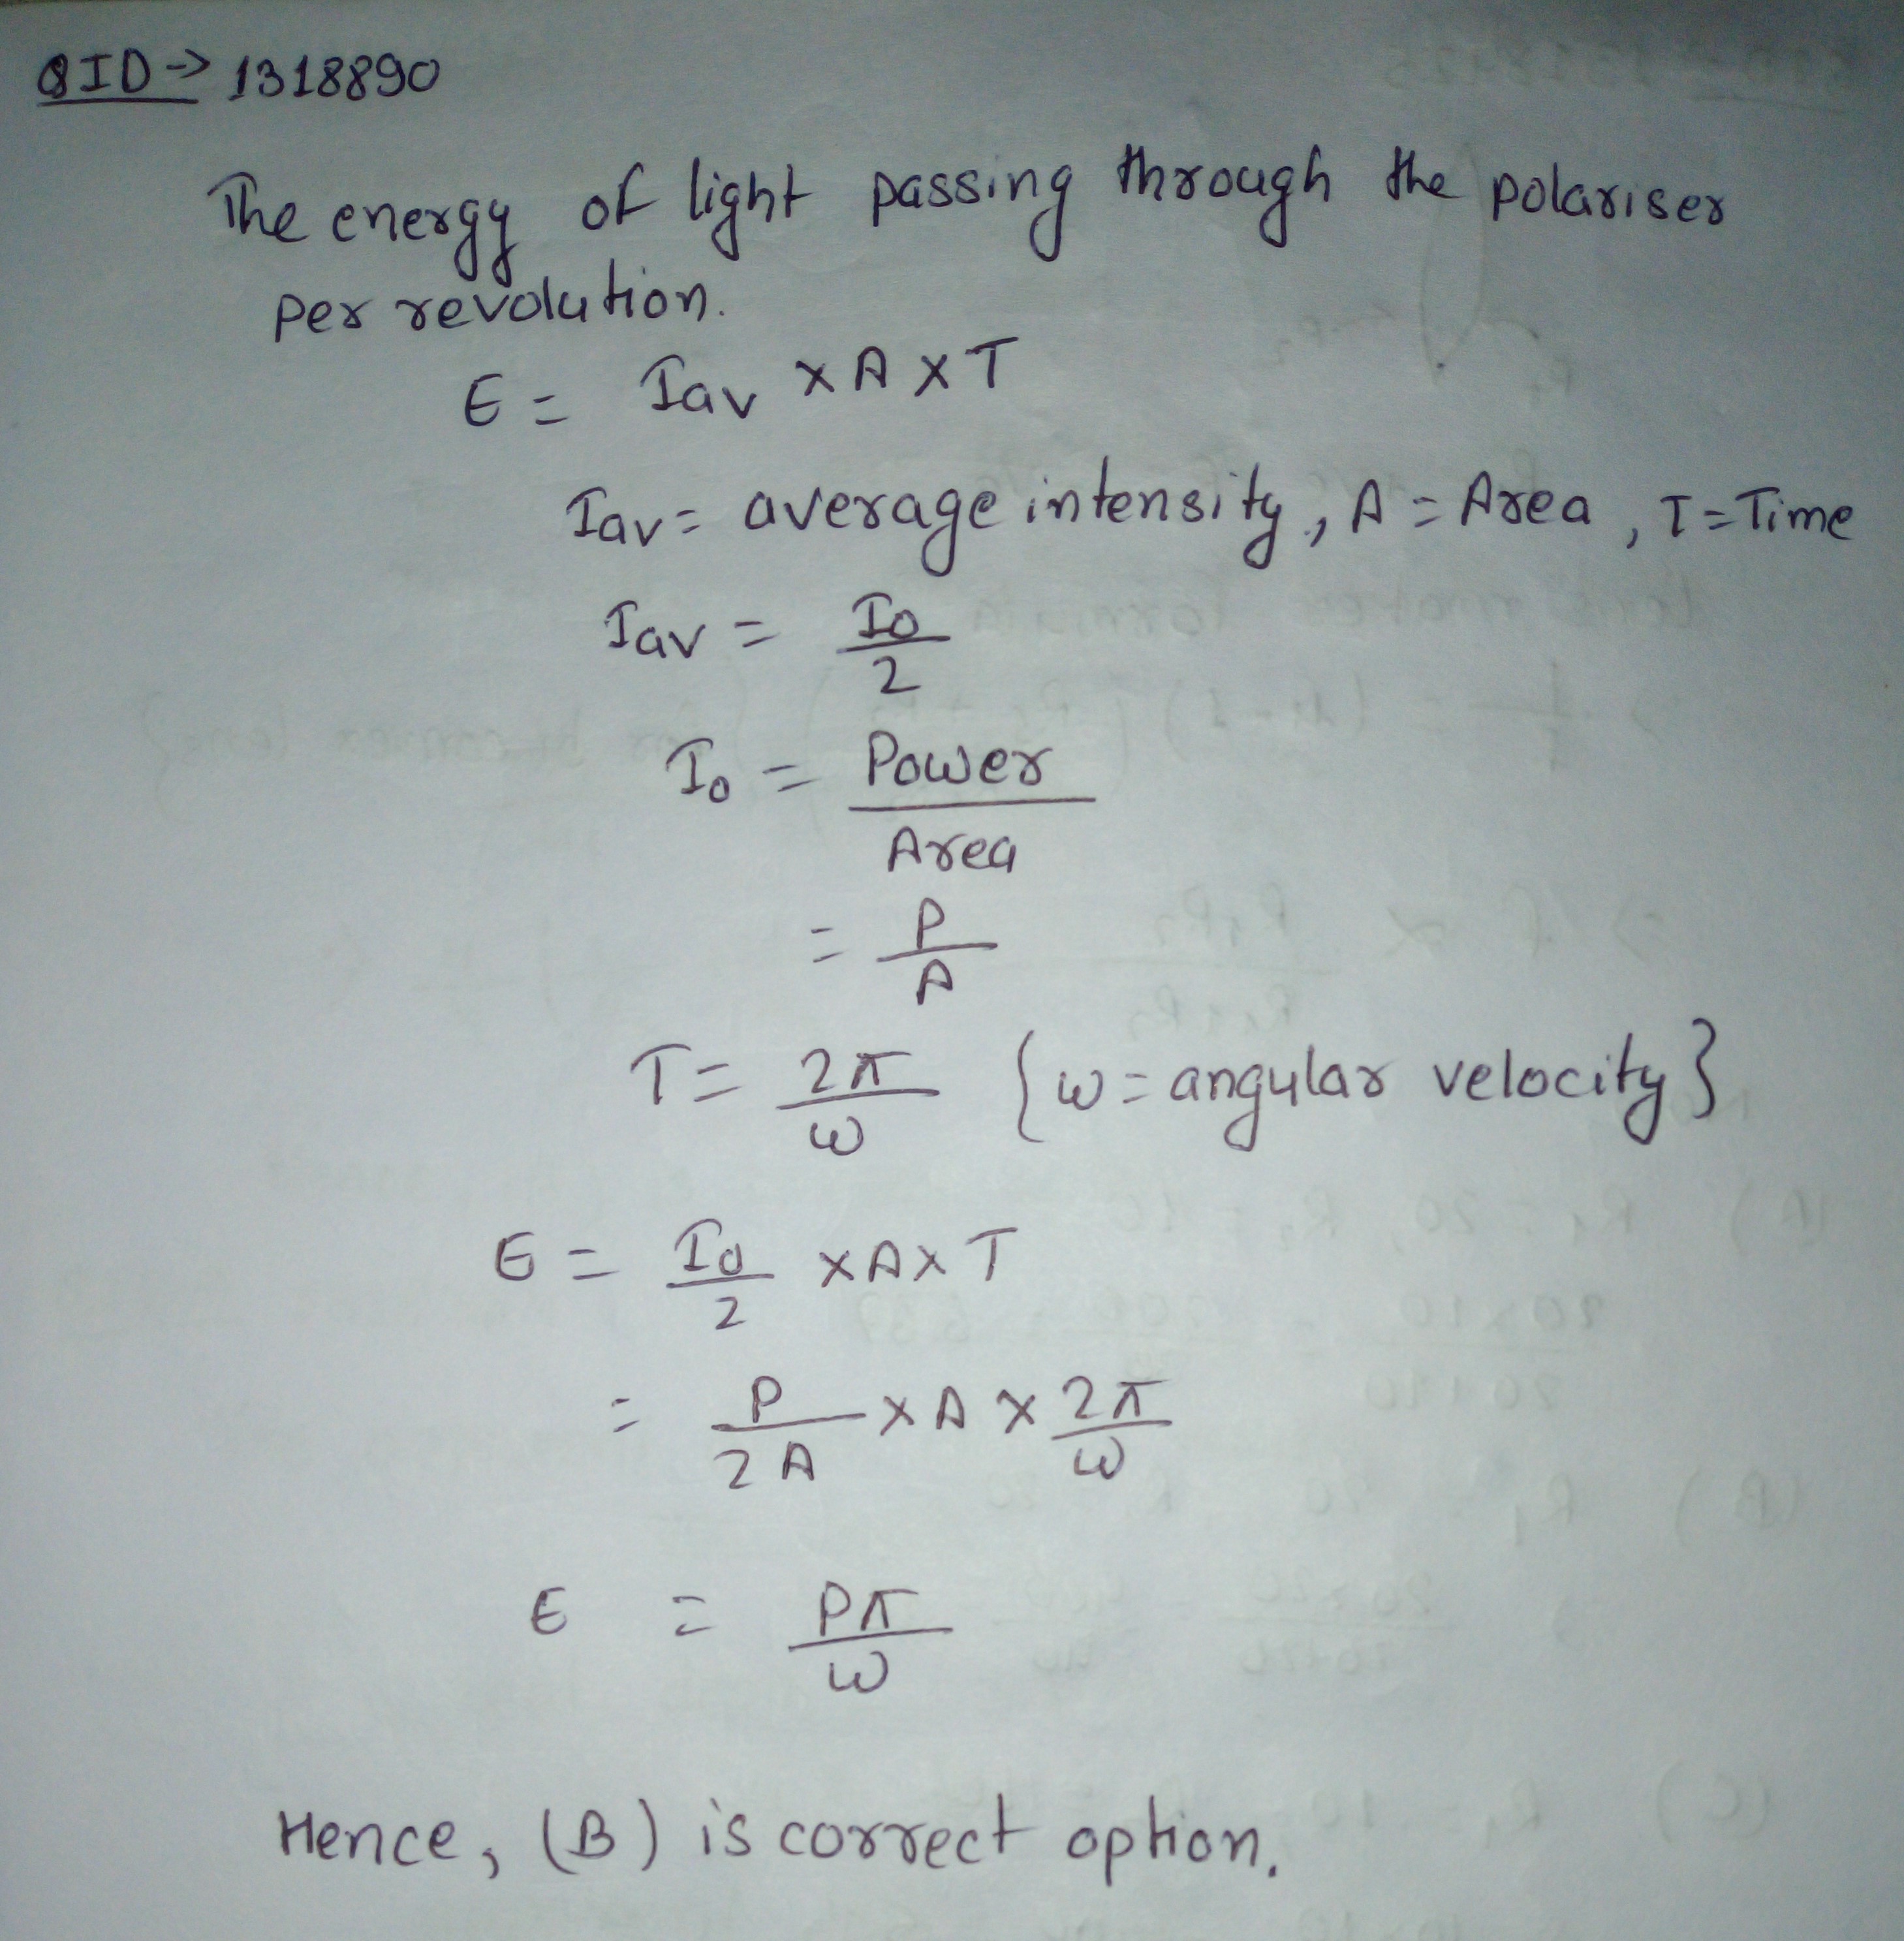 QID → 1318890
The energy of light passing through the polariser
per revolution.
E = Iav × A × T
Iav = average intensity, A = Area, T = Time
Iav = I0/2
I0 = Power/Area
= P/A
T = 2π/ω {ω = angular velocity}
E = I0/2 × A × T
= P/2A × A × 2π/ω
E = Pπ/ω
Hence, (B) is correct option.